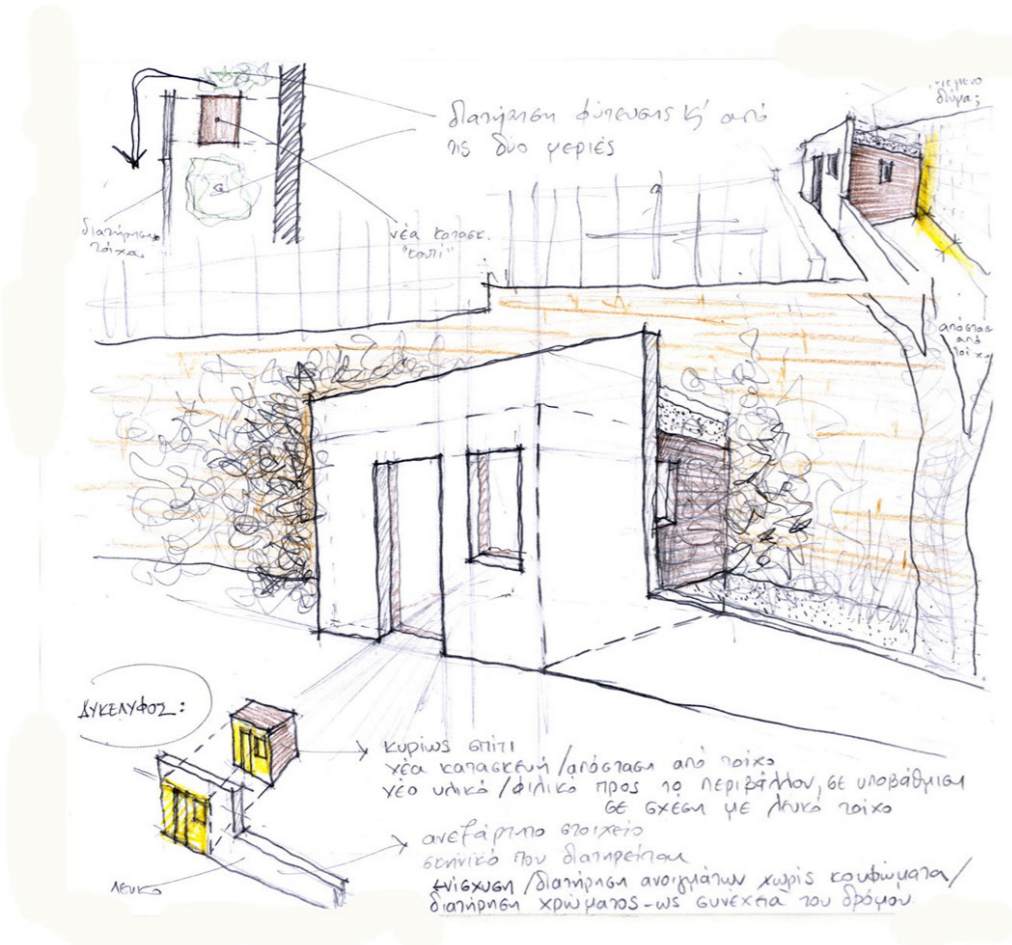 διατήρηση φύτευσης κ' από
τις δυο μεριές
δώμα;
διατήρηση
τοίχου
νέα κατασκ.
"κουτί"
απόσταση
από
τοίχο
ΔΥΚΕΛΥΦΟΣ:
κυρίως σπίτι
νέα κατασκευή /απόσταση από τοίχο
νέο υλικό /φιλικό προς το περιβάλλον, σε υποβάθμιση
σε σχέση με λευκό τοίχο
ανεξάρτητο στοιχείο
σκηνικό που διατηρείται
ενίσχυση /διατήρηση ανοιγμάτων χωρίς κουφώματα/
διατήρηση χρώματος - ως συνέχεια του δρόμου
λευκό